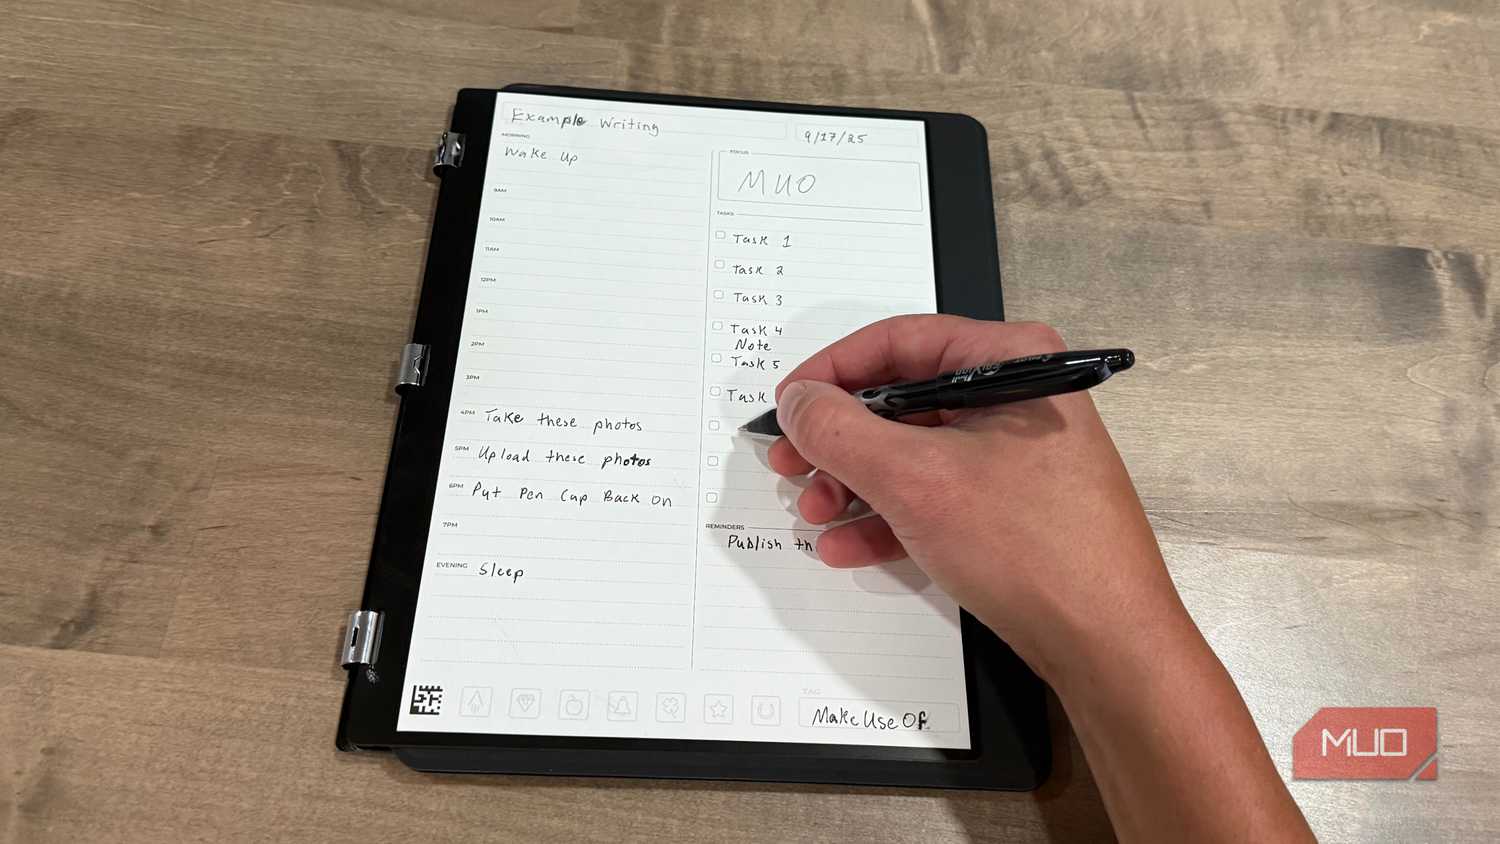 Example Writing
9/17/25
MORNING
Wake Up
9AM
10AM
11AM
12PM
1PM
2PM
3PM
4PM Take these photos
5PM Upload these photos
6PM Put Pen Cap Back On
7PM
EVENING Sleep
FOCUS
MUO
TASKS
Task 1
Task 2
Task 3
Task 4
Note
Task 5
Task
REMINDERS
Publish th
TAG
Make Use Of
FriXion ball
MUO